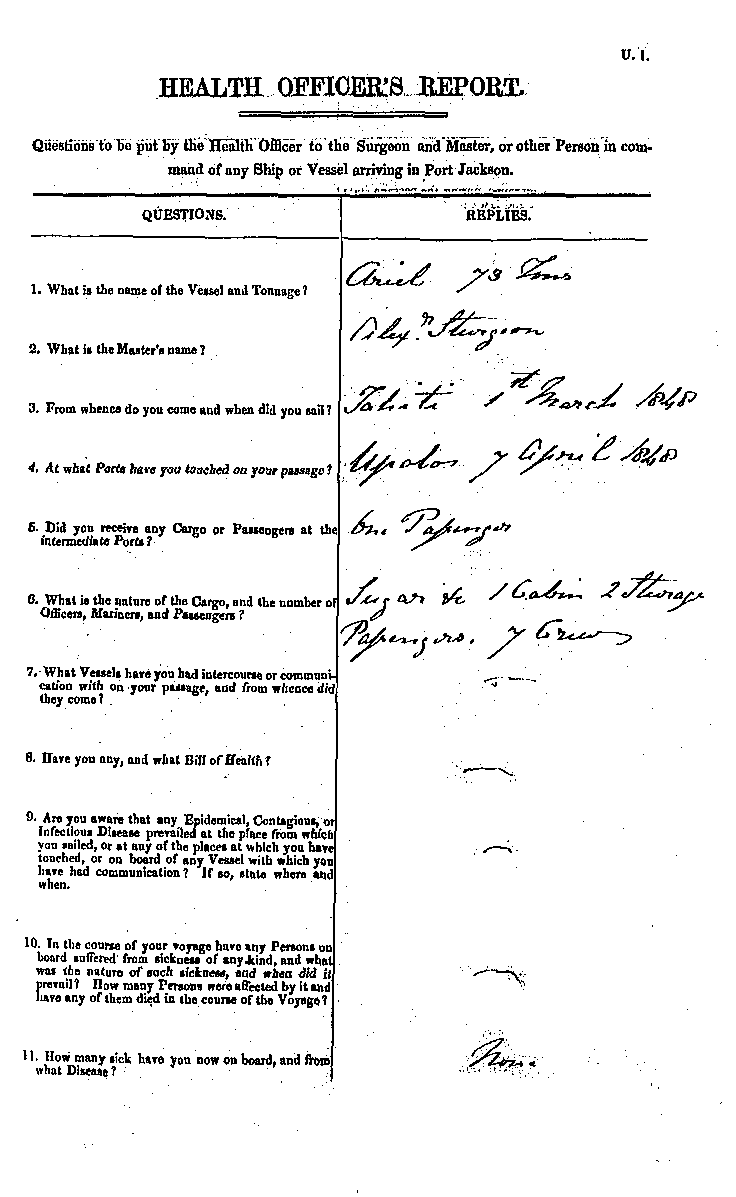 U. 1.
HEALTH OFFICER'S REPORT.
Questions to be put by the Health Officer to the Surgeon and Master, or other Person in com-
mand of any Ship or Vessel arriving in Port Jackson.
QUESTIONS.
REPLIES.
1. What is the name of the Vessel and Tonnage?
Ariel 73 Tons
2. What is the Master's name?
Alexr. Sturgeon
3. From whence do you come and when did you sail?
Tahiti 1st March 1848
4. At what Ports have you touched on your passage?
Upolos 7 April 1848
5. Did you receive any Cargo or Passengers at the
intermediate Ports?
One Passenger
6. What is the nature of the Cargo, and the number of
Officers, Mariners, and Passengers?
Sugar &c 1 Cabin 2 Steerage
Passengers. 7 Crew
7. What Vessels have you had intercourse or communi-
cation with on your passage, and from whence did
they come?
8. Have you any, and what Bill of Health?
9. Are you aware that any Epidemical, Contagious, or
Infectious Disease prevailed at the place from which
you sailed, or at any of the places at which you have
touched, or on board of any Vessel with which you
have had communication? If so, state where and
when.
10. In the course of your voyage have any Persons on
board suffered from sickness of any kind, and what
was the nature of such sickness, and when did it
prevail? How many Persons were affected by it and
have any of them died in the course of the Voyage?
11. How many sick have you now on board, and from
what Disease?
None